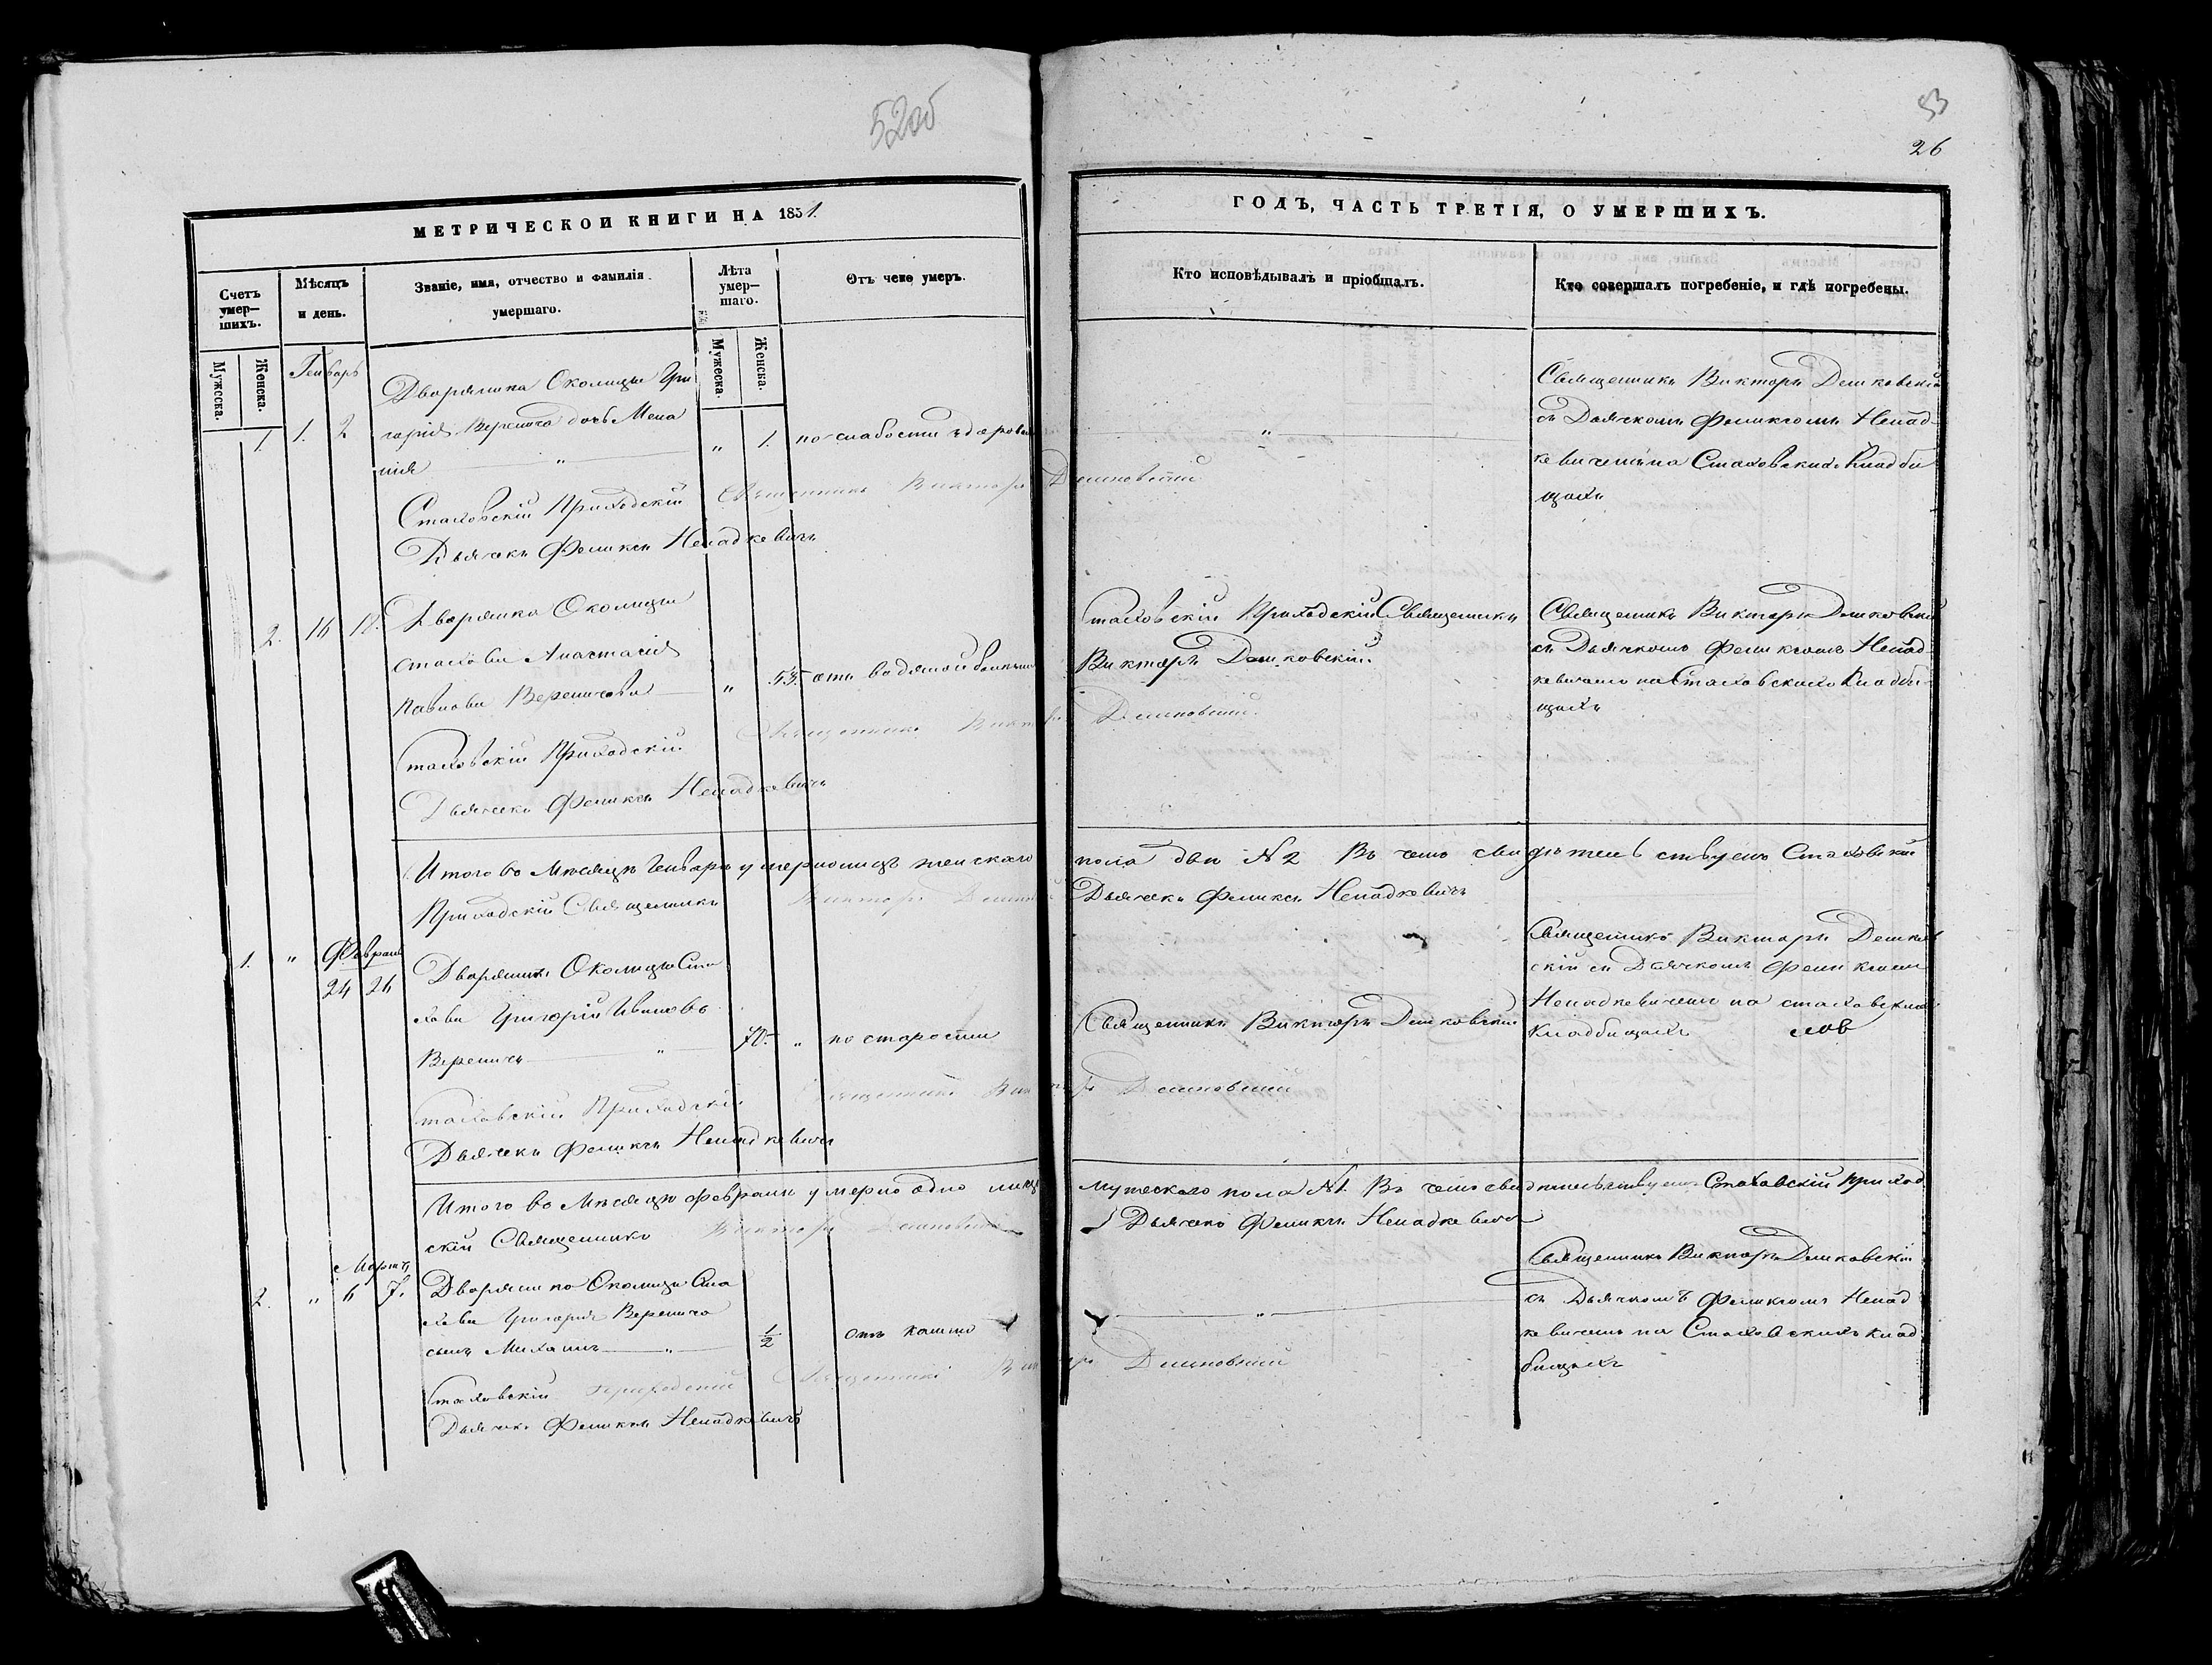 52об
МЕТРИЧЕСКОЙ КНИГИ НА 1851.
Счетъ умер-шихъ.
Мѣсяцъ и день.
Званіе, имя, отчество и фамилія умершаго.
Лѣта умер-шаго.
Отъ чего умеръ.
Мужеска.
Женска.
Мужеска.
Женска.
Генварь
1. 1. 2
Дворянина Околицы Гри
горія Веренича дочь Мела
нія — „ —
„ 1. по слабости здоровья
Стаховскій Приходскій Священникъ Викторъ Дешковскій
Дьячекъ Феликсъ Ненадкевичъ
2. 16 18.
Дворянка Околицы
Стахова Анастасія
Павлова Вереничова —
„ 53. отъ водяной болезни
Стаховскій Приходскій Священникъ Викторъ Дешковскій
Дьячекъ Феликсъ Ненадкевичъ
Итого во Мѣсяцѣ Генварѣ умерло лицъ женскаго
Приходскій Священникъ Викторъ Дешковскій
1. „ Февраль
24 26
Дворянинъ Околицы Ста
хова Григорій Ивановъ
Вереничъ — „ —
70. „ по старости
Стаховскій Приходскій Священникъ Викторъ Дешковскій
Дьячекъ Феликсъ Ненадкевичъ
Итого во Мѣсяцѣ Февралѣ умерло одно лицо
скій Священникъ Викторъ Дешковскій
Мартъ
2. „ 6 7.
Дворянина Околицы Ста
хова Григорія Веренича
сынъ Михаилъ — „ —
1/2 отъ кашлю
Стаховскій Приходскій Священникъ Викторъ Дешковскій
Дьячекъ Феликсъ Ненадкевичъ
53
26
ГОДЪ, ЧАСТЬ ТРЕТІЯ, О УМЕРШИХЪ.
Кто исповѣдывалъ и пріобщалъ.
Кто совершалъ погребеніе, и гдѣ погребены.
— „ —
Священникъ Викторъ Дешковскій
съ Дьячкомъ Феликсомъ Ненад-
кевичемъ на Стаховскихъ Кладби
щахъ
Стаховскій Приходскій Священникъ
Викторъ Дешковскій
Священникъ Викторъ Дешковскій
съ Дьячкомъ Феликсомъ Ненад-
кевичемъ на Стаховскихъ Кладби-
щахъ
пола два N 2 Въ чемъ свидѣтельствуемъ Стаховскій
Дьячекъ Феликсъ Ненадкевичъ
Священникъ Викторъ Дешковскій
Священникъ Викторъ Дешков
скій съ Дьячкомъ Феликсомъ
Ненадкевичемъ на Стаховскихъ
Кладбищахъ
мужескаго пола N 1. Въ чемъ свидѣтельствуемъ Стаховскій Приход
Дьячекъ Феликсъ Ненадкевичъ
— „ —
Священникъ Викторъ Дешковскій
съ Дьячкомъ Феликсомъ Ненад
кевичемъ на Стаховскихъ Клад
бищахъ